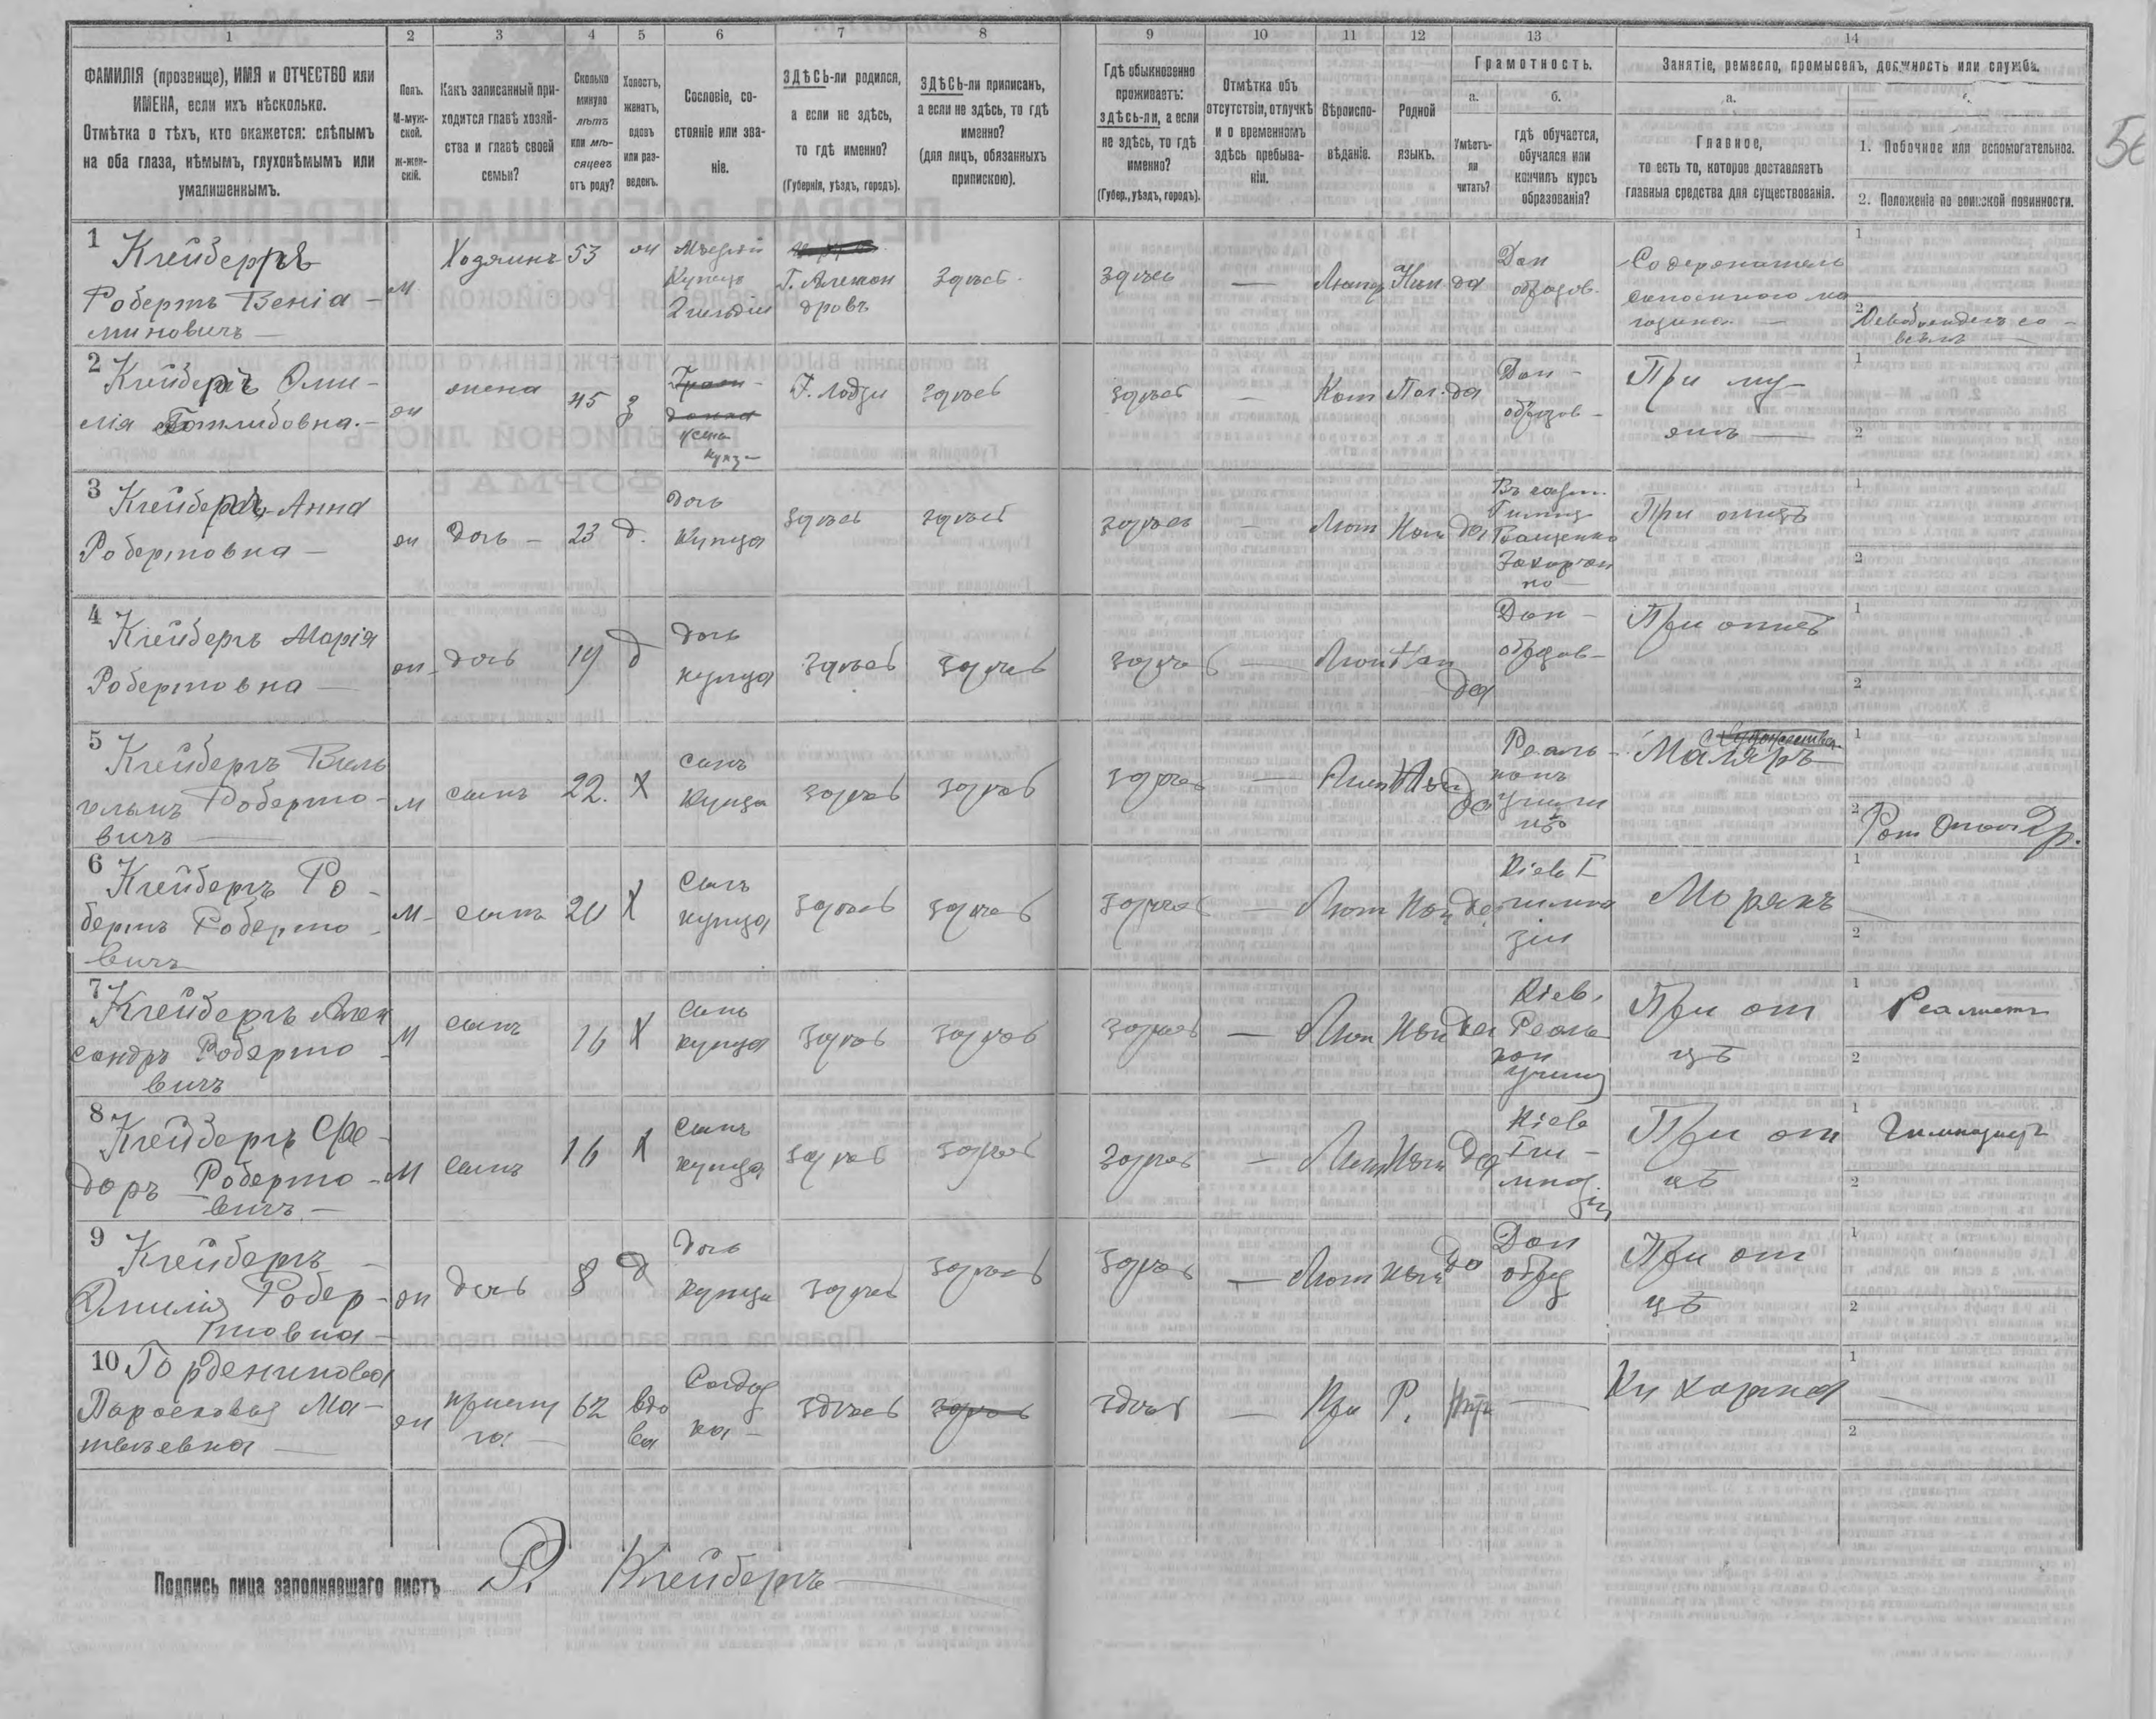 1 2 3 4 5 6 7 8 9 10 11 12 13 14
ФАМИЛІЯ (прозвище), ИМЯ и ОТЧЕСТВО или
ИМЕНА, если ихъ нѣсколько.
Отмѣтка о тѣхъ, кто окажется: слѣпымъ
на оба глаза, нѣмымъ, глухонѣмымъ или
умалишеннымъ.
Полъ.
М-муж-
ской.
Ж-жен-
скій.
Какъ записанный при-
ходится главѣ хозяй-
ства и главѣ своей
семьи?
Сколько
минуло
лѣтъ
или мѣ-
сяцевъ
отъ роду?
Холостъ,
женатъ,
вдовъ
или раз-
веденъ.
Сословіе, со-
стояніе или зва-
ніе.
ЗДѢСЬ-ли родился,
а если не здѣсь,
то гдѣ именно?
(Губернія, уѣздъ, городъ).
ЗДѢСЬ-ли приписанъ,
а если не здѣсь, то гдѣ
именно?
(для лицъ, обязанныхъ
припискою).
Гдѣ обыкновенно
проживаетъ:
здѣсь-ли, а если
не здѣсь, то гдѣ
именно?
(Губер., уѣздъ, городъ).
Отмѣтка объ
отсутствіи, отлучкѣ
и о временномъ
здѣсь пребыва-
ніи.
Вѣроиспо-
вѣданіе.
Родной
языкъ.
Грамотность.
а.
Умѣетъ-
ли
читать?
б.
гдѣ обучается,
обучался или
кончилъ курсъ
образованія?
Занятіе, ремесло, промыселъ, должность или служба.
а.
Главное,
то есть то, которое доставляетъ
главныя средства для существованія.
1. Побочное или вспомогательное.
2. Положеніе по воинской повинности.
1 Клейберъ
Робертъ Веніа-
миновичъ
м Хозяинъ 53 ж
Купецъ
2 гильдіи
Г. Александровъ
здѣсь
здѣсь — Лютер Нѣм да
Дом
образов.
Содержатель
1
2
2 Клейберъ Эми-
лія Готлибовна.
ж жена 45 з
жена
купц
Г. Лодзи здѣсь
здѣсь — Кат Пол. да
Дом-
образов-
При му-
жѣ
1
2
3 Клейберъ Анна
Робертовна —
ж дочь — 23 д.
дочь
купца
здѣсь здѣсь
здѣсь — Лют Нѣм да
При отцѣ
1
2
4 Клейберъ Марія
Робертовна —
ж дочь 19 д
дочь
купца
здѣсь здѣсь
здѣсь — Лют Нѣм да
Дом-
образов-
При отцѣ
1
2
5 Клейберъ Виль
гельмъ Роберто-
вичъ
м сынъ 22. Х
сынъ
купца
здѣсь здѣсь
здѣсь — Лют Нѣм да
Реаль-
номъ
училищѣ
Маляръ
1
2
6 Клейберъ Ро-
бертъ Роберто-
вичъ
м сынъ 20 Х
сынъ
купца
здѣсь здѣсь
здѣсь — Лют Нѣм да
Кіев I
гимна
зіи
Морякъ
1
2
7 Клейберъ Алек
сандръ Роберто-
вичъ
м сынъ 16 Х
сынъ
купца
здѣсь здѣсь
здѣсь — Лют Нѣм да
Кіев.
Реаль
ном
училищ
При от
цѣ
1 Реалистъ
2
8 Клейберъ Фе-
доръ Роберто-
вичъ —
м сынъ 16 Х
сынъ
купца
здѣсь здѣсь
здѣсь — Лют Нѣм да
Кіев
Ги-
мна
зіи
При от
цѣ
1 Гимназистъ
2
9 Клейберъ —
Эмилія Робер-
товна —
ж дочь 8 д
дочь
купца
здѣсь здѣсь
здѣсь — Лют Нѣм да
Дом
образ
При от
цѣ
1
2
10
Параскова Ма-
твѣевна —
ж прислу
га. 62 вдо
ва
Солдат
ка —
здѣсь здѣсь
здѣсь — Р. Нѣт —
Кухарка
1
2
Подпись лица заполнявшаго листъ Р. Клейберъ